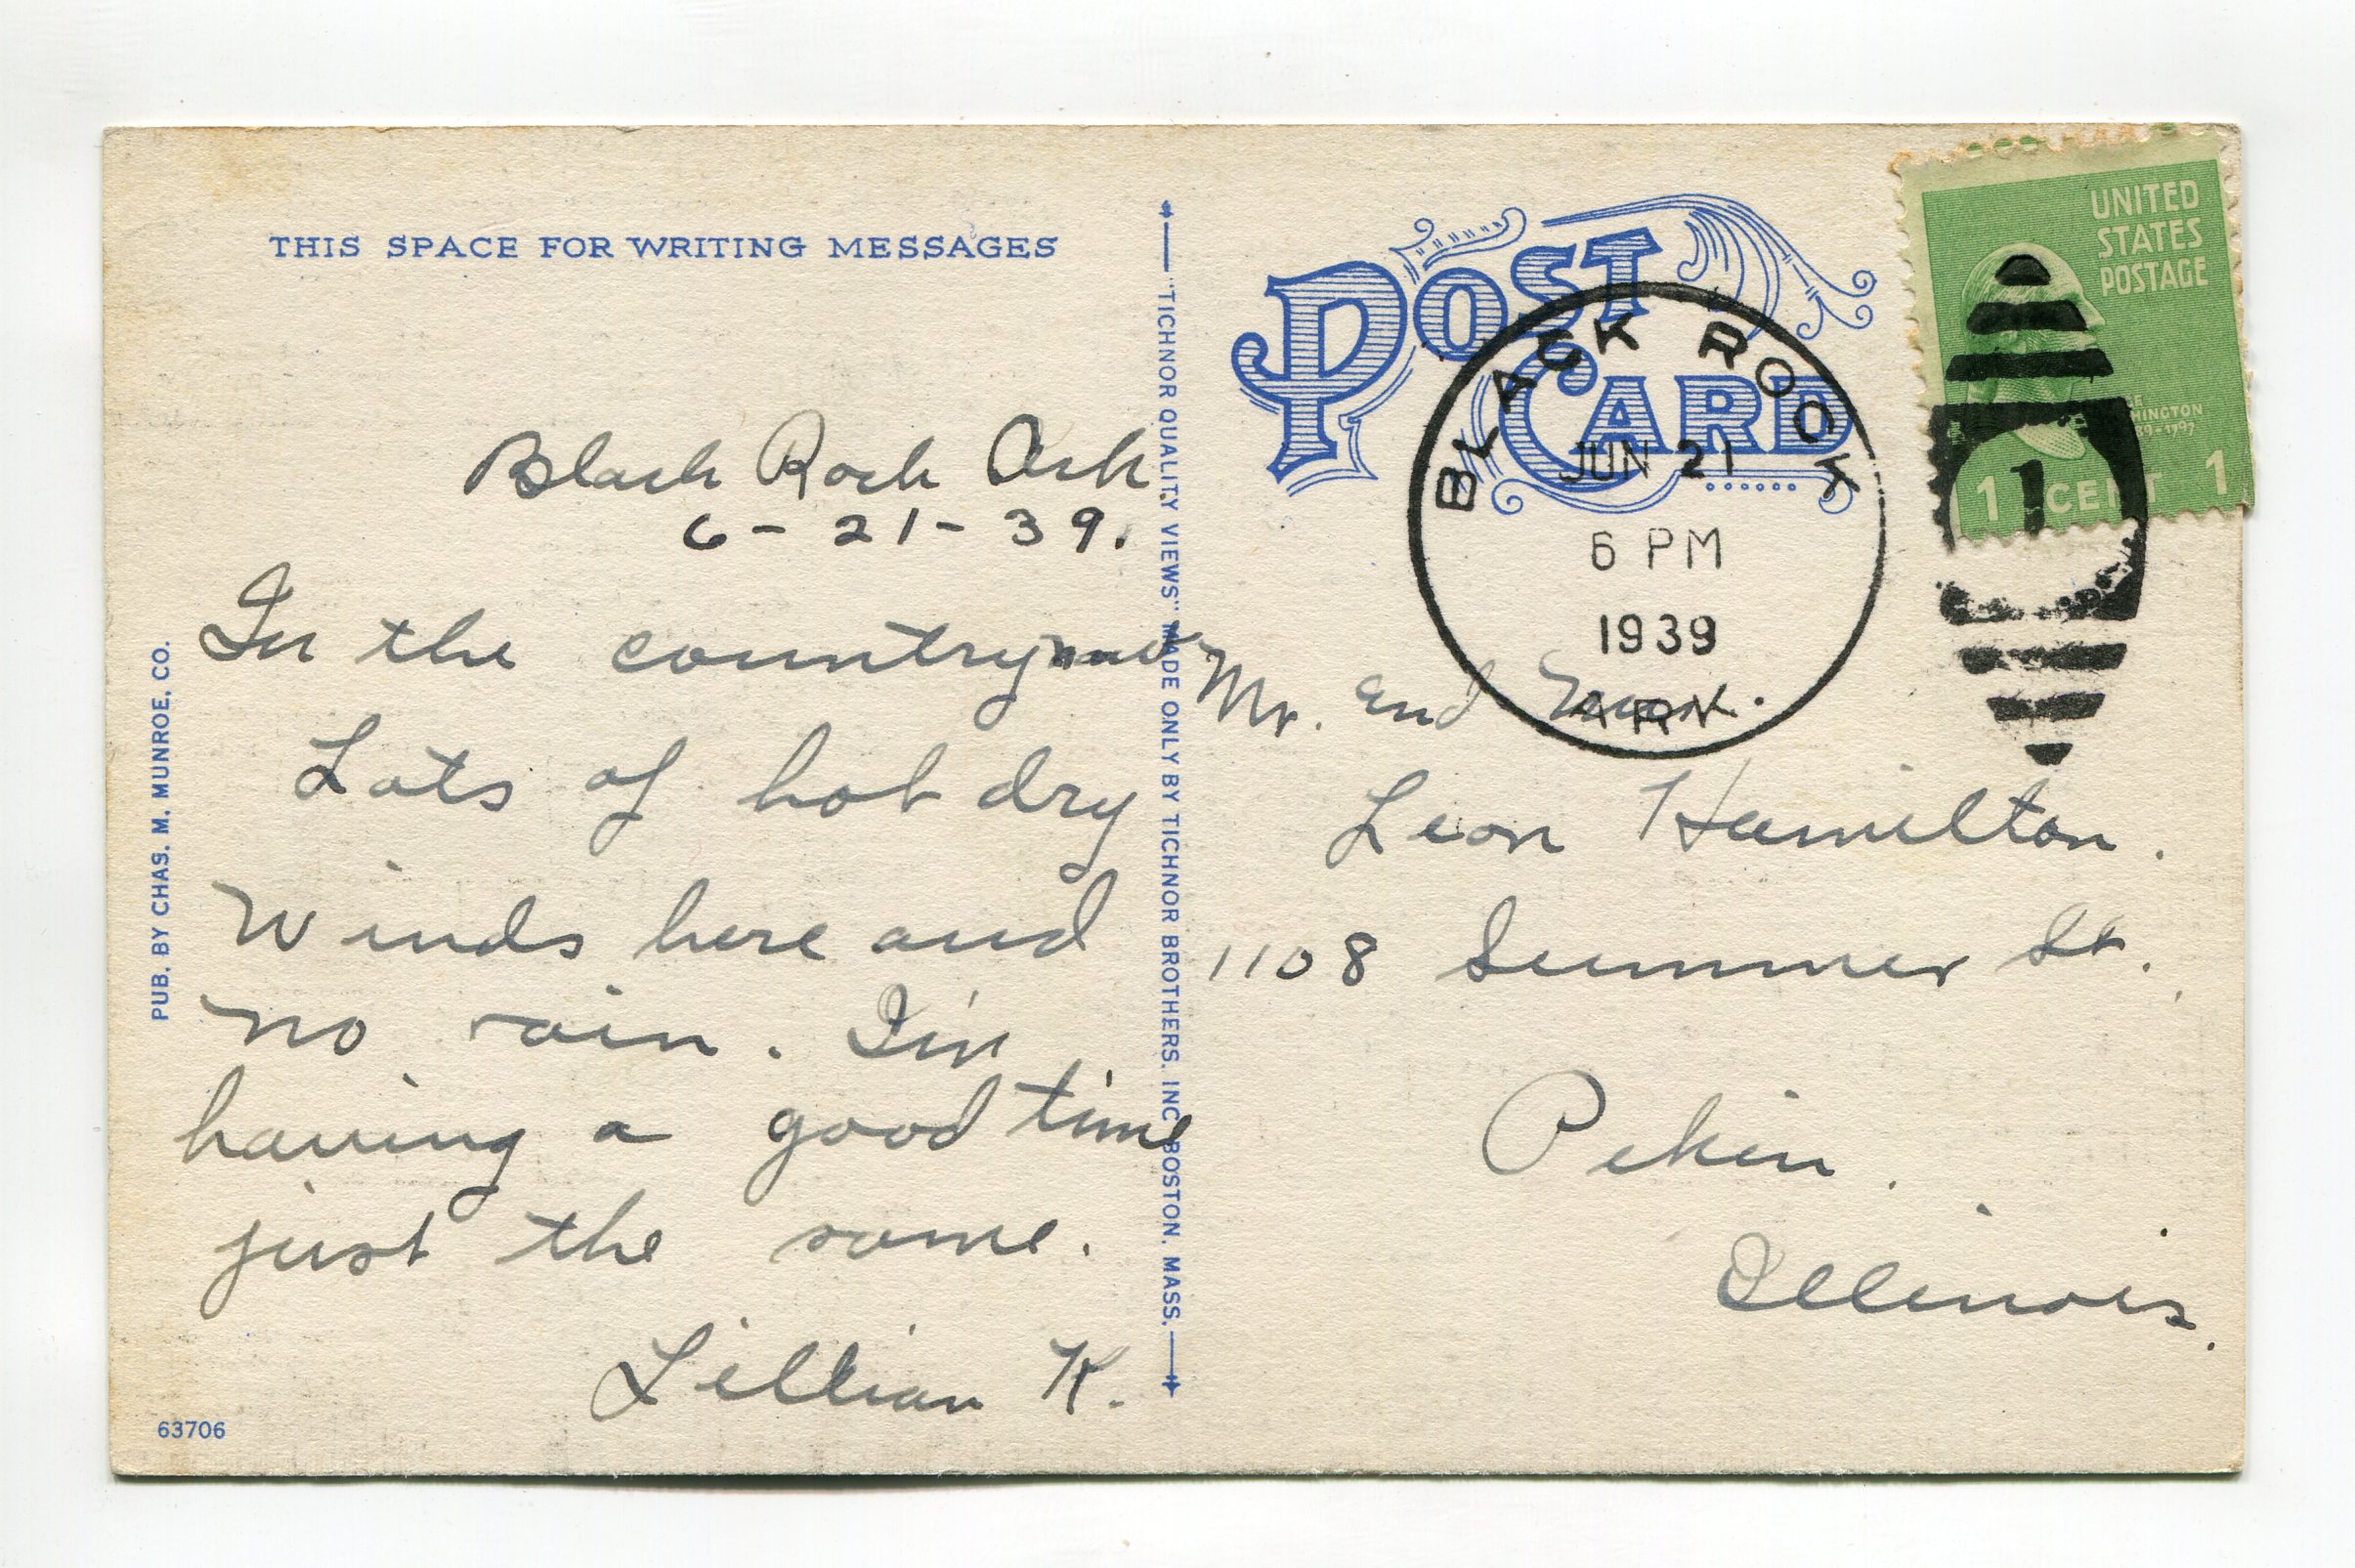 THIS SPACE FOR WRITING MESSAGES
Black Rock Ark.
6-21-39.
In the country now
Lots of hot dry
Winds here and
no rain. I'm
having a good time
just the same.
Lillian K.
PUB. BY CHAS. M. MUNROE, CO.
63706
"TICHNOR QUALITY VIEWS" MADE ONLY BY TICHNOR BROTHERS. INC. BOSTON. MASS.
POST
CARD
BLACK ROCK
JUN 21
6 PM
1939
ARK.
UNITED
STATES
POSTAGE
1 CENT 1
1
Mr. and
Leon Hamilton.
1108 Summer St.
Pekin.
Illinois.